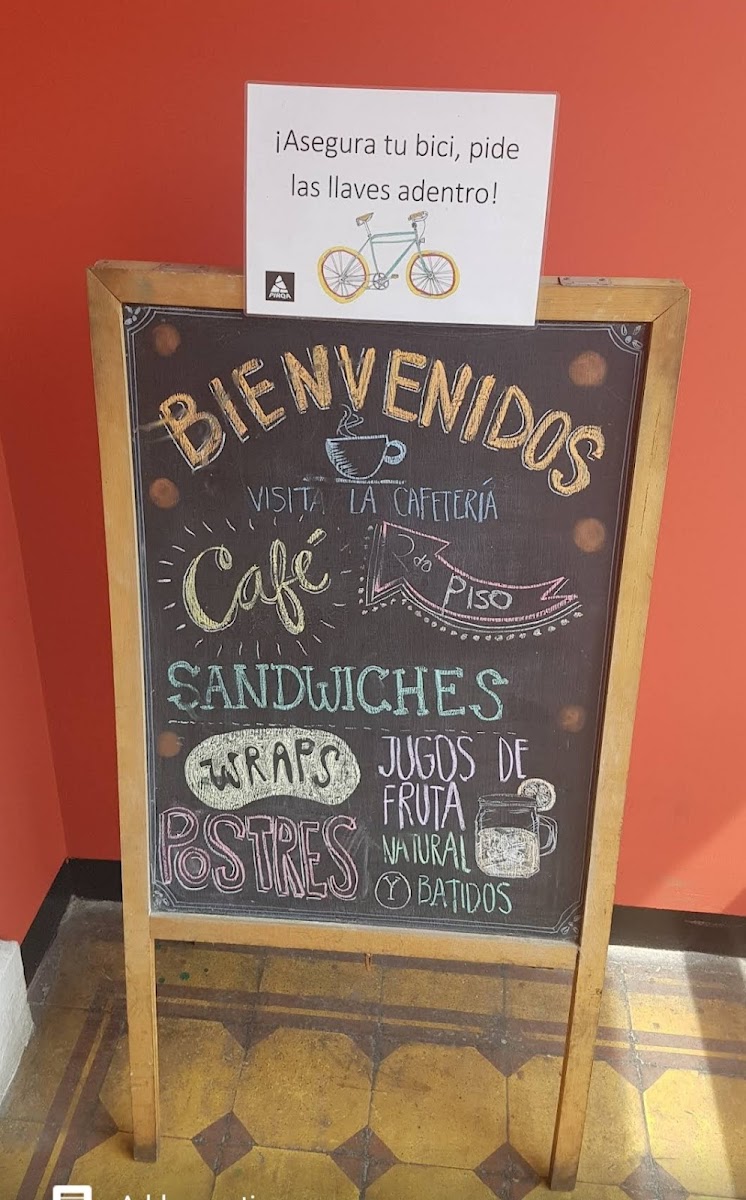 ¡Asegura tu bici, pide
las llaves adentro!
BIENVENIDOS
VISITA LA CAFETERÍA
Café
2do
PISO
SANDWICHES
WRAPS
POSTRES
JUGOS DE
FRUTA
NATURAL
Y BATIDOS